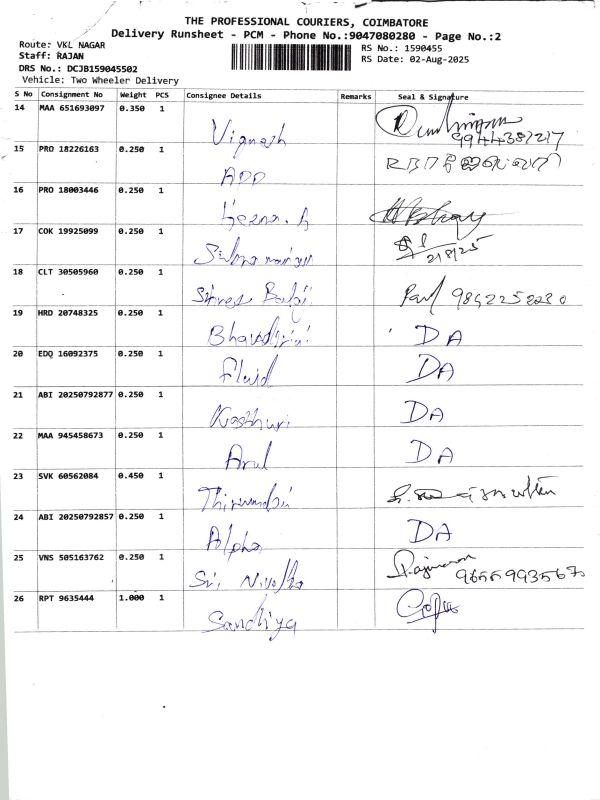 THE PROFESSIONAL COURIERS, COIMBATORE
Delivery Runsheet - PCM - Phone No.:9047080280 - Page No.:2
Route: VKL NAGAR
Staff: RAJAN
DRS No.: DCJB159045502
Vehicle: Two Wheeler Delivery
RS No.: 1590455
RS Date: 02-Aug-2025
S No Consignment No Weight PCS Consignee Details Remarks Seal & Signature
14 MAA 651693097 0.350 1 Vignesh
15 PRO 18226163 0.250 1 ADD
16 PRO 18003446 0.250 1 Heena. A
17 COK 19925099 0.250 1 2/8/25
18 CLT 30505960 0.250 1 Babji 9842252230
19 HRD 20748325 0.250 1 DA
20 EDQ 16092375 0.250 1 Fluid DA
21 ABI 20250792877 0.250 1 Kasthuri DA
22 MAA 945458673 0.250 1 Arul DA
23 SVK 60562084 0.450 1
24 ABI 20250792857 0.250 1 Alpha DA
25 VNS 505163762 0.250 1 Sri
26 RPT 9635444 1.000 1 Sandhiya